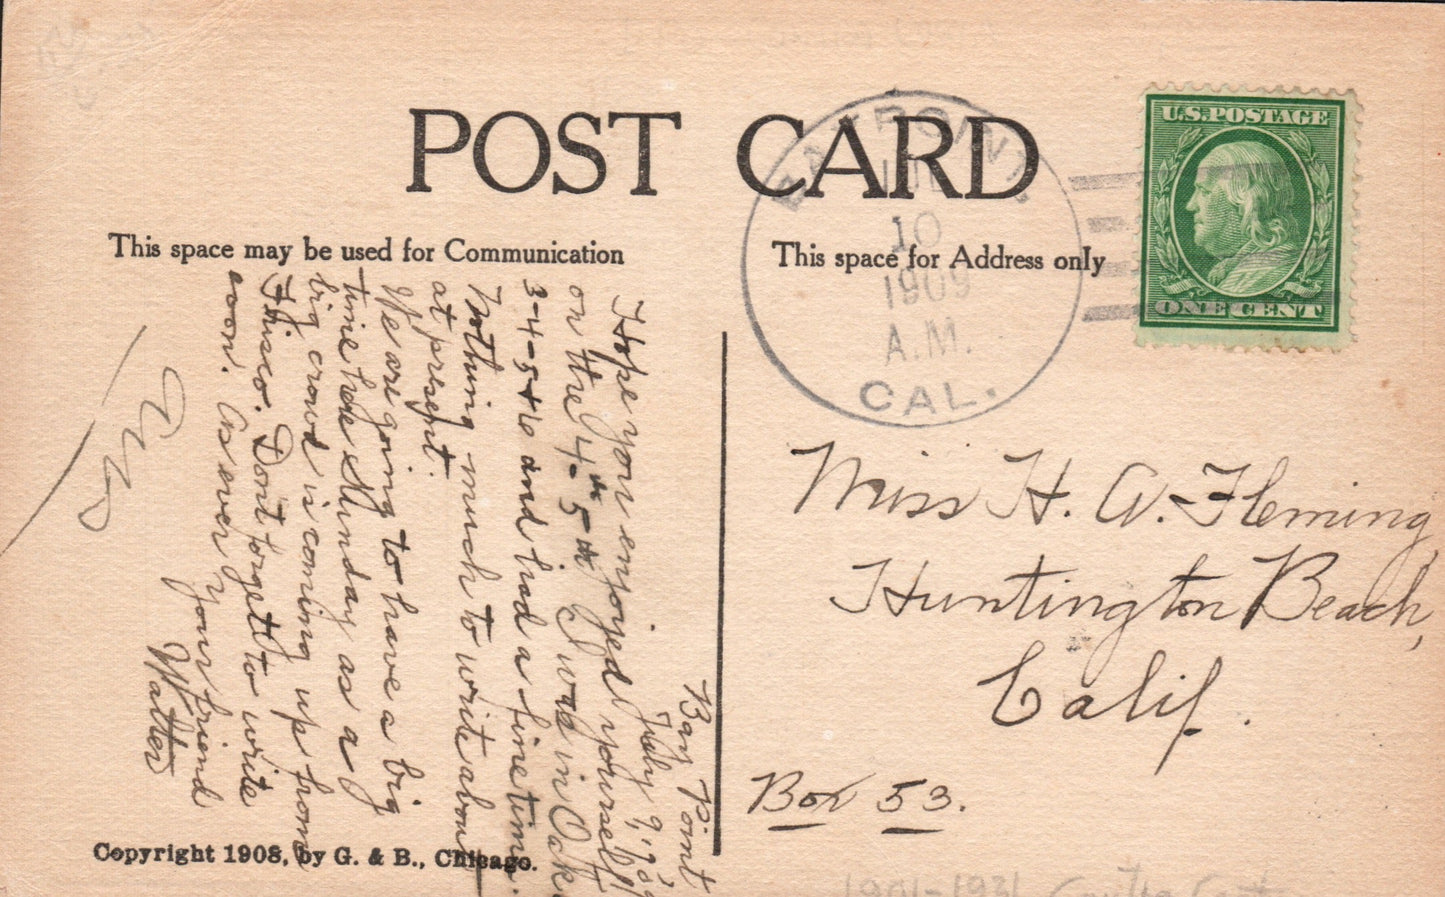 POST CARD
This space may be used for Communication
This space for Address only
U.S. POSTAGE
ONE CENT
BAY POINT.
JUL
10
1909
A.M.
CAL.
Bay Point
July 9, '09
I Hope you enjoyed yourself
on the 4th-5th. I was in Oak.
3-4-5+6 and had a fine time.
Nothing much to write about
at present.
We are going to have a big
time here Sunday as a
big crowd is coming up from
Frisco. Don't forget to write
soon. As ever your friend
Walter
Miss H. A. Fleming,
Huntington Beach,
Calif.
Box 53.
Copyright 1908, by G. & B., Chicago.
1901-1931